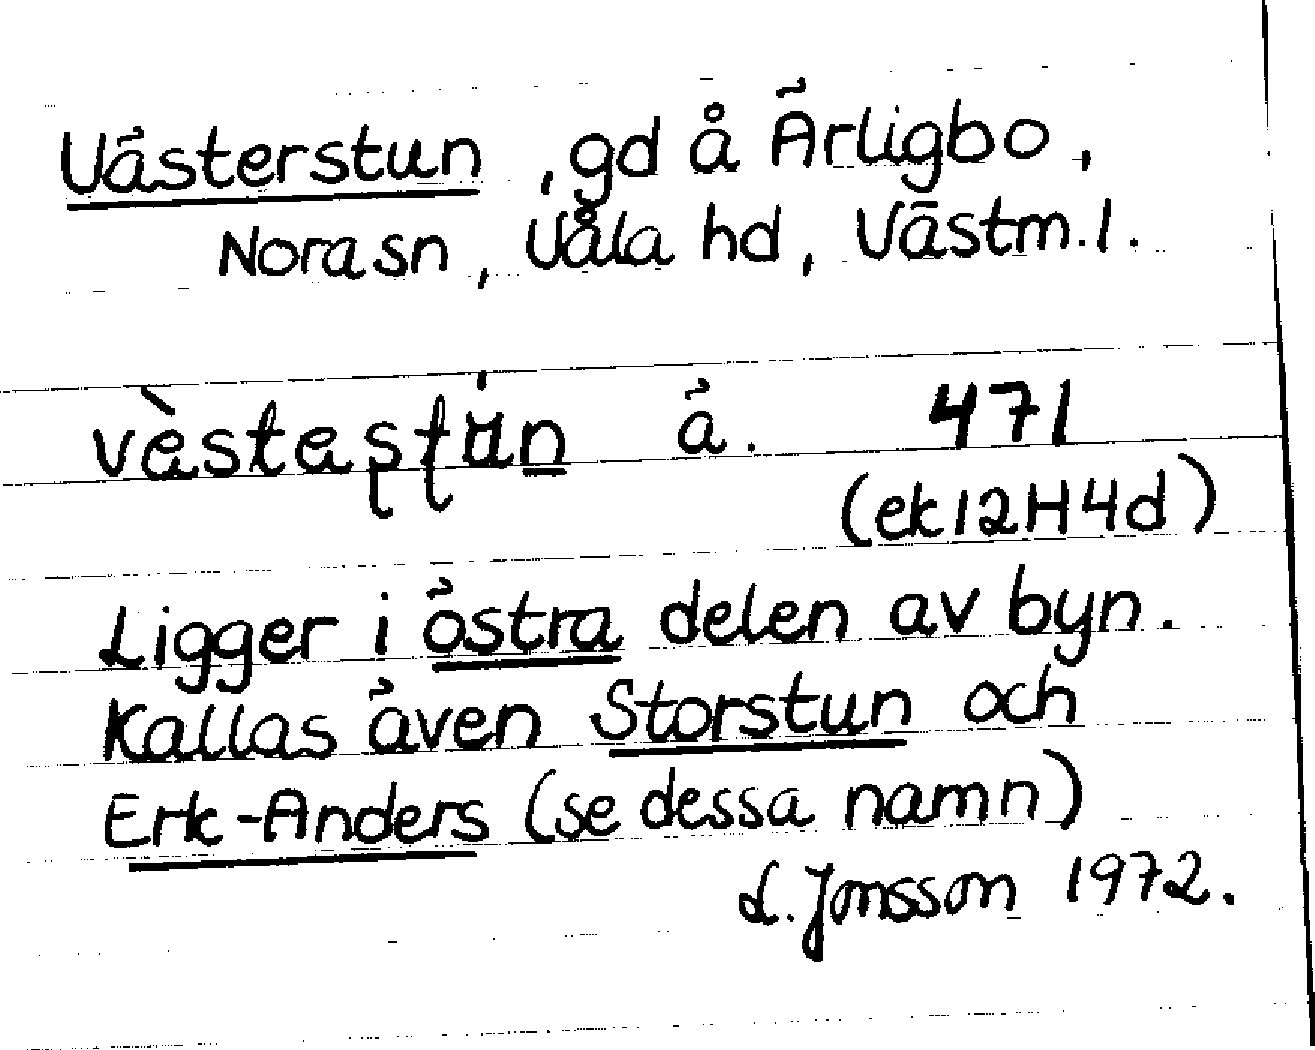 Västerstun, gd å Ärligbo,
Nora sn, Våla hd, Västm.l.
vèstesʈu̇n ä. 471
(ek12H4d)
Ligger i östra delen av byn.
Kallas även Storstun och
Erk-Anders (se dessa namn)
L. Jonsson 1972.